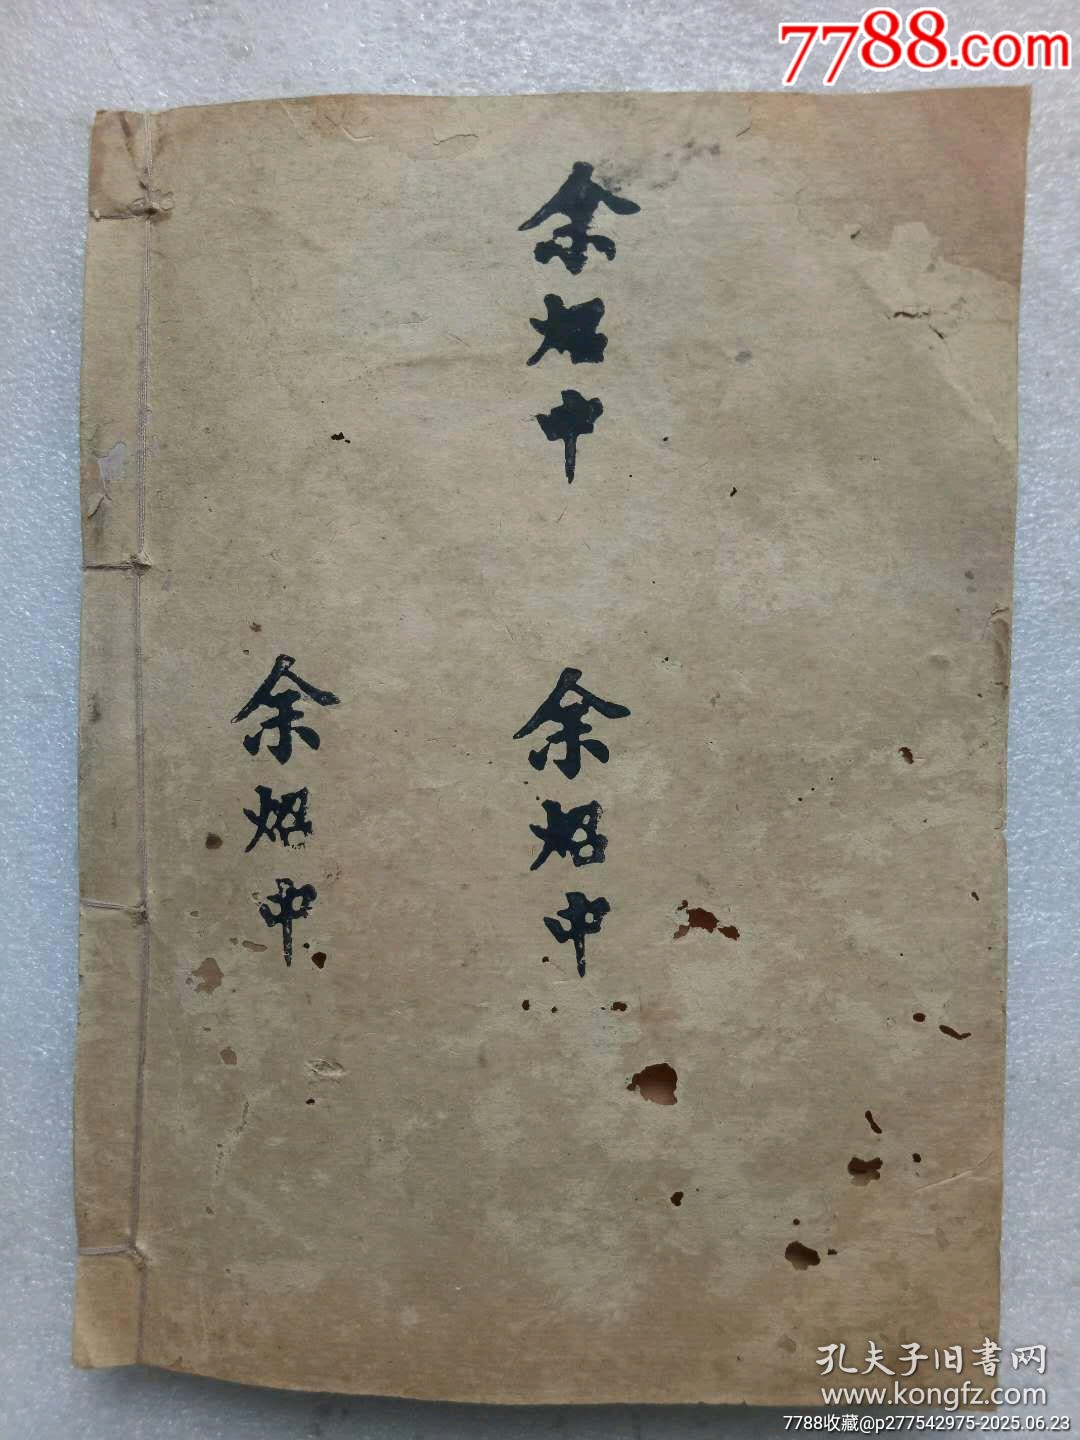 7788.com
余炤中
余炤中
余炤中
孔夫子旧書网
www.kongfz.com
7788收藏@p277542975-2025.06.23